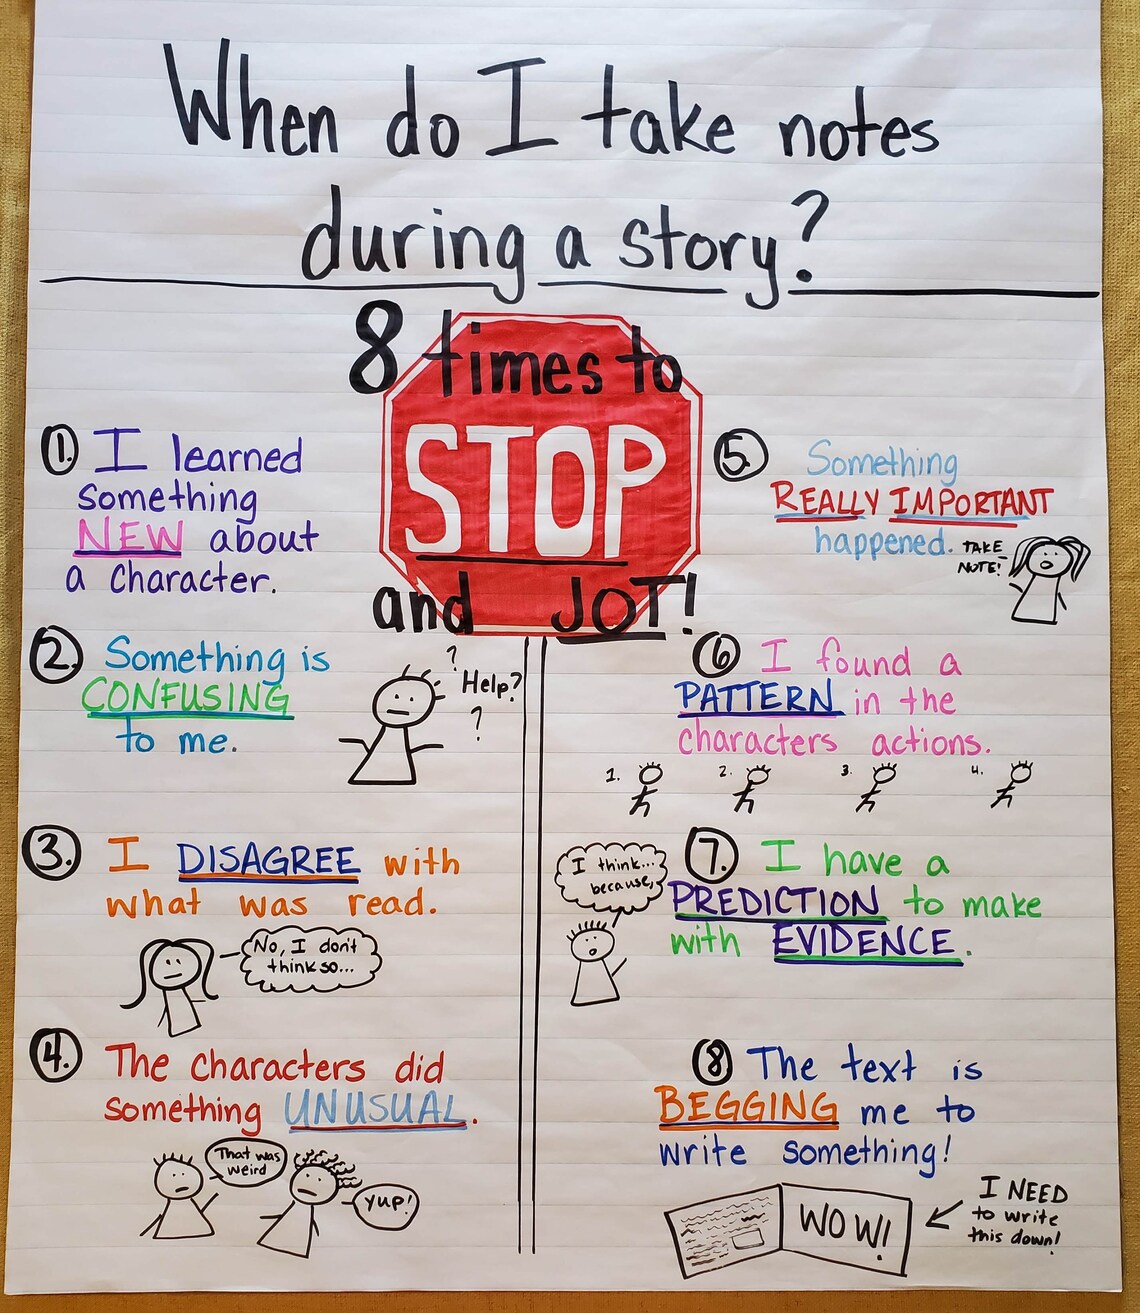 When do I take notes
during a story?
8 times to
STOP
and JOT!
1. I learned
something
NEW about
a character.
2. Something is
CONFUSING
to me.
?
Help?
?
3. I DISAGREE with
what was read.
No, I don't
think so...
4. The characters did
something UNUSUAL.
That was
weird
yup!
5. Something
REALLY IMPORTANT
happened.
TAKE
NOTE!
6 I found a
PATTERN in the
characters actions.
1. 2. 3. 4.
7. I have a
PREDICTION to make
with EVIDENCE.
I think...
because,
8 The text is
BEGGING me to
write something!
WOW!
I NEED
to write
this down!